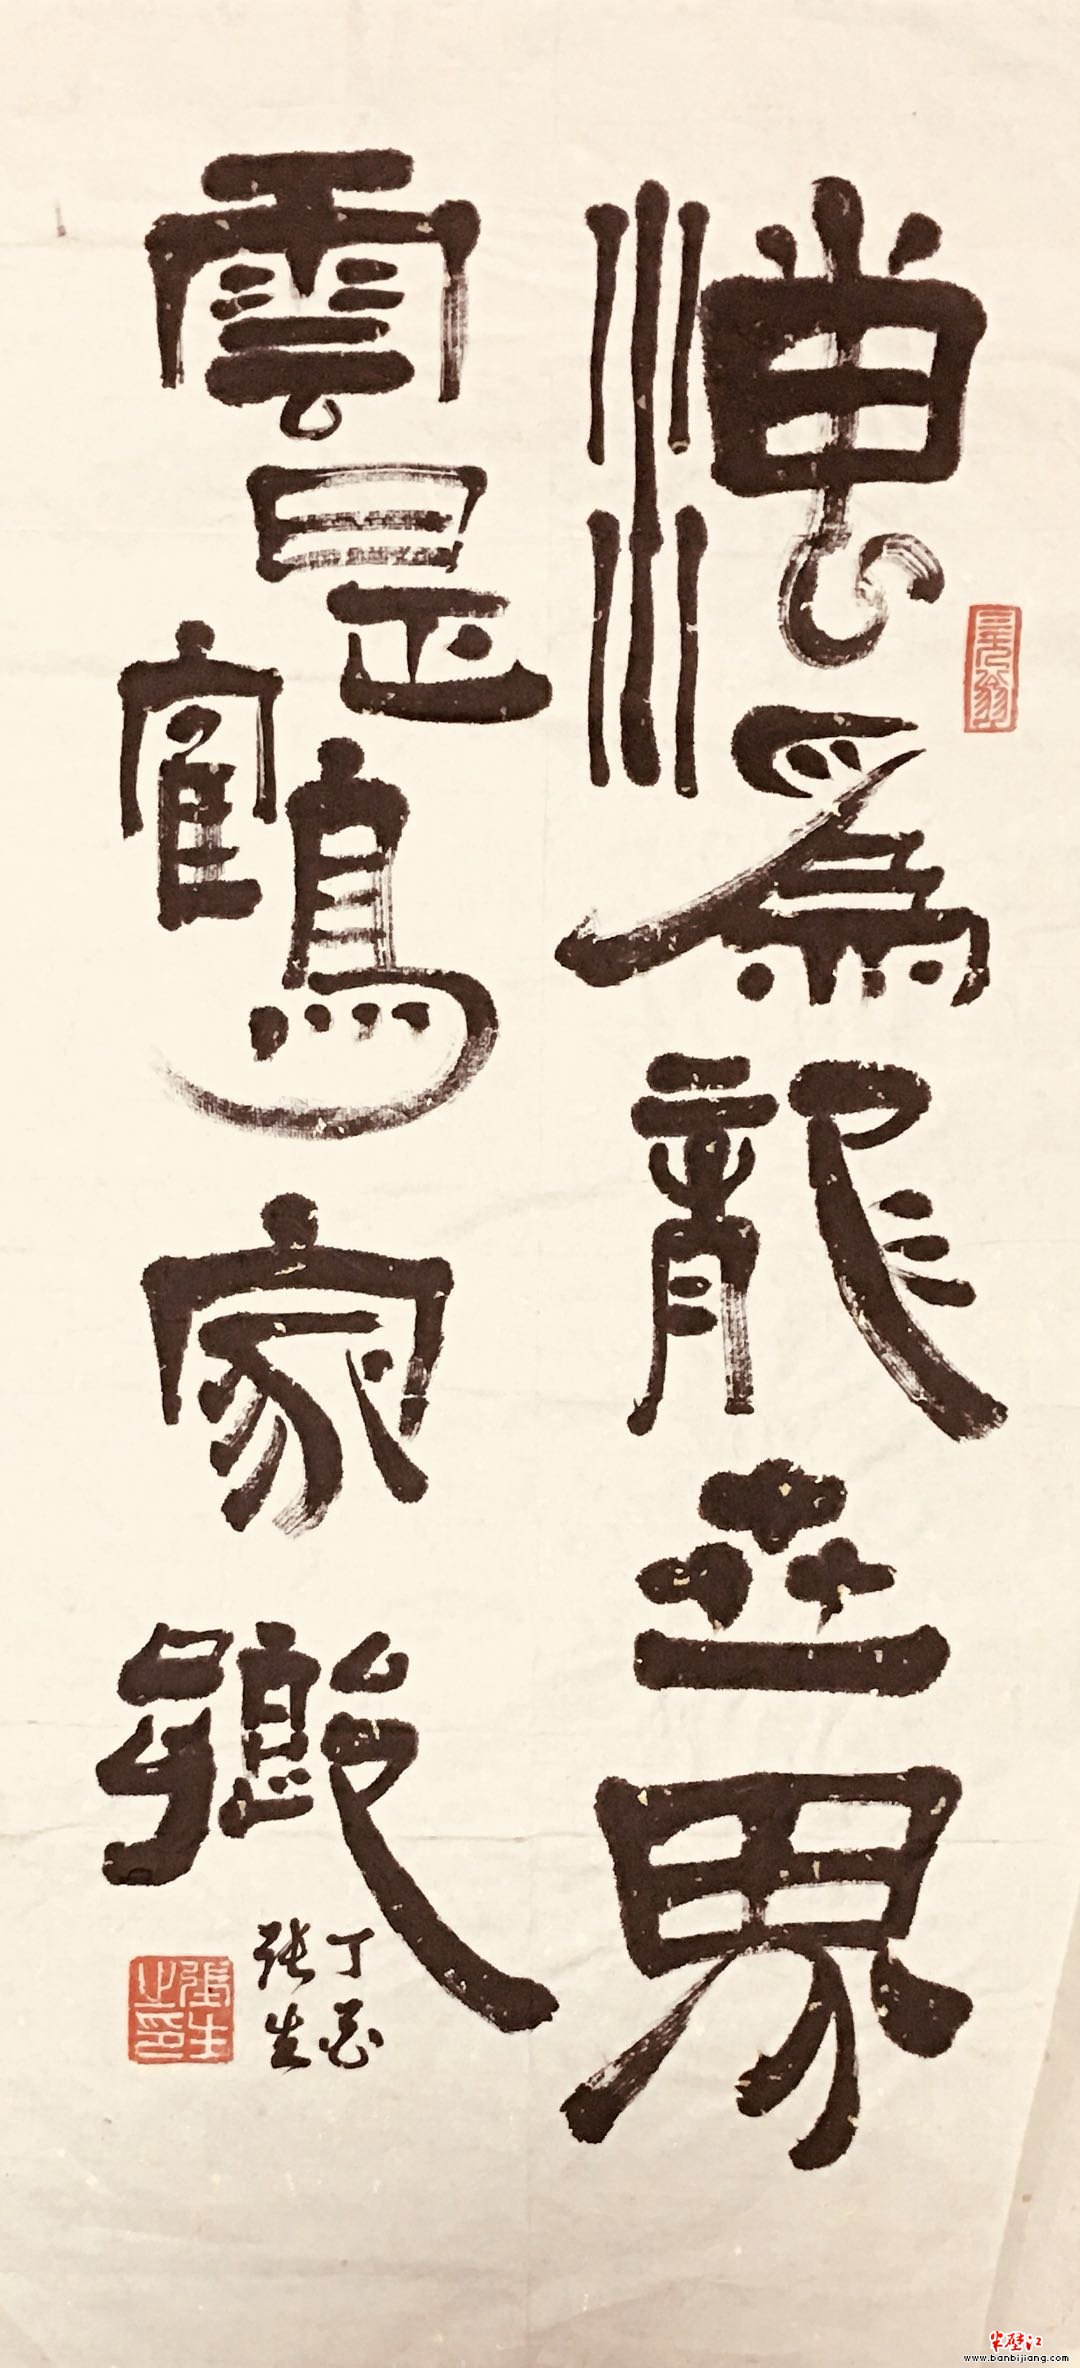 海為龍世界
雲是鶴家鄉
丁酉
张生
張生之印
半壁江
www.banbijiang.com